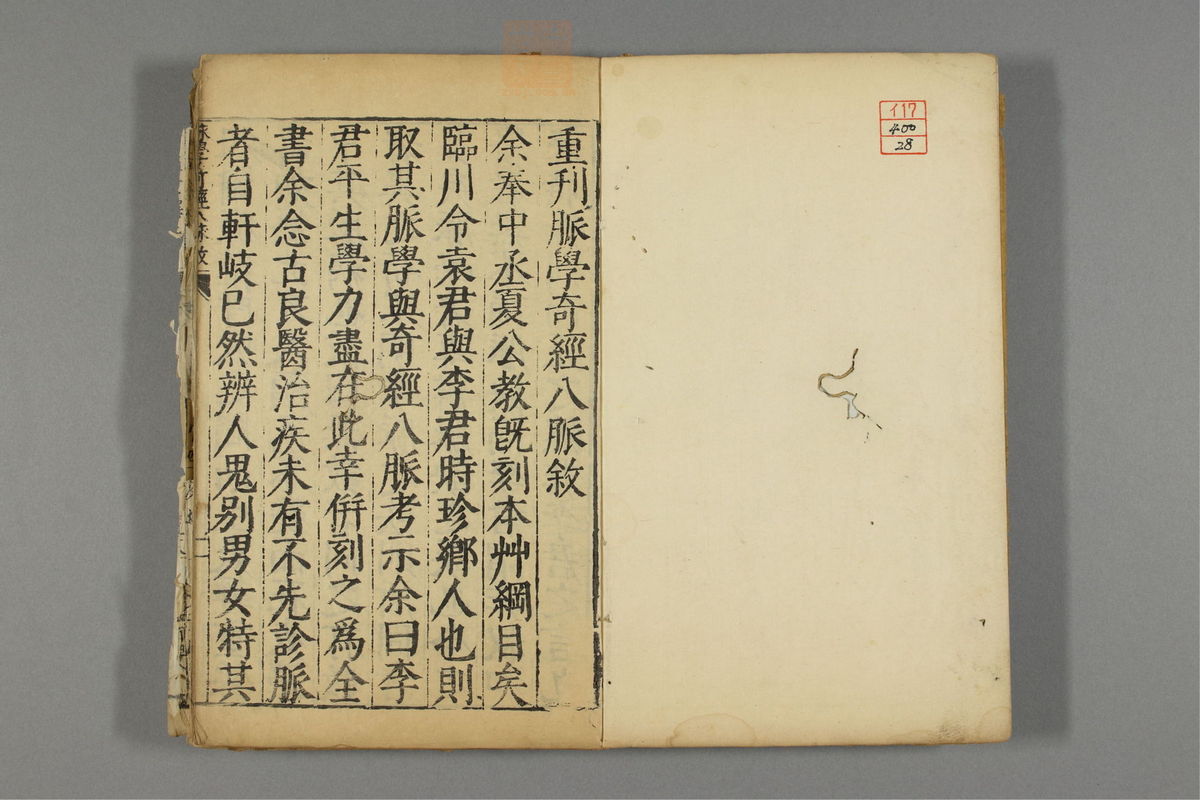 重刋脈學奇經八脈敘
余奉中丞夏公教旣刻本艸綱目矣
臨川令袁君與李君時珍鄉人也則
取其脈學與奇經八脈考示余曰李
君平生學力盡在此幸倂刻之爲全
書余念古良醫治疾未有不先診脈
者自軒岐已然辨人鬼别男女特其
イ17
400
28